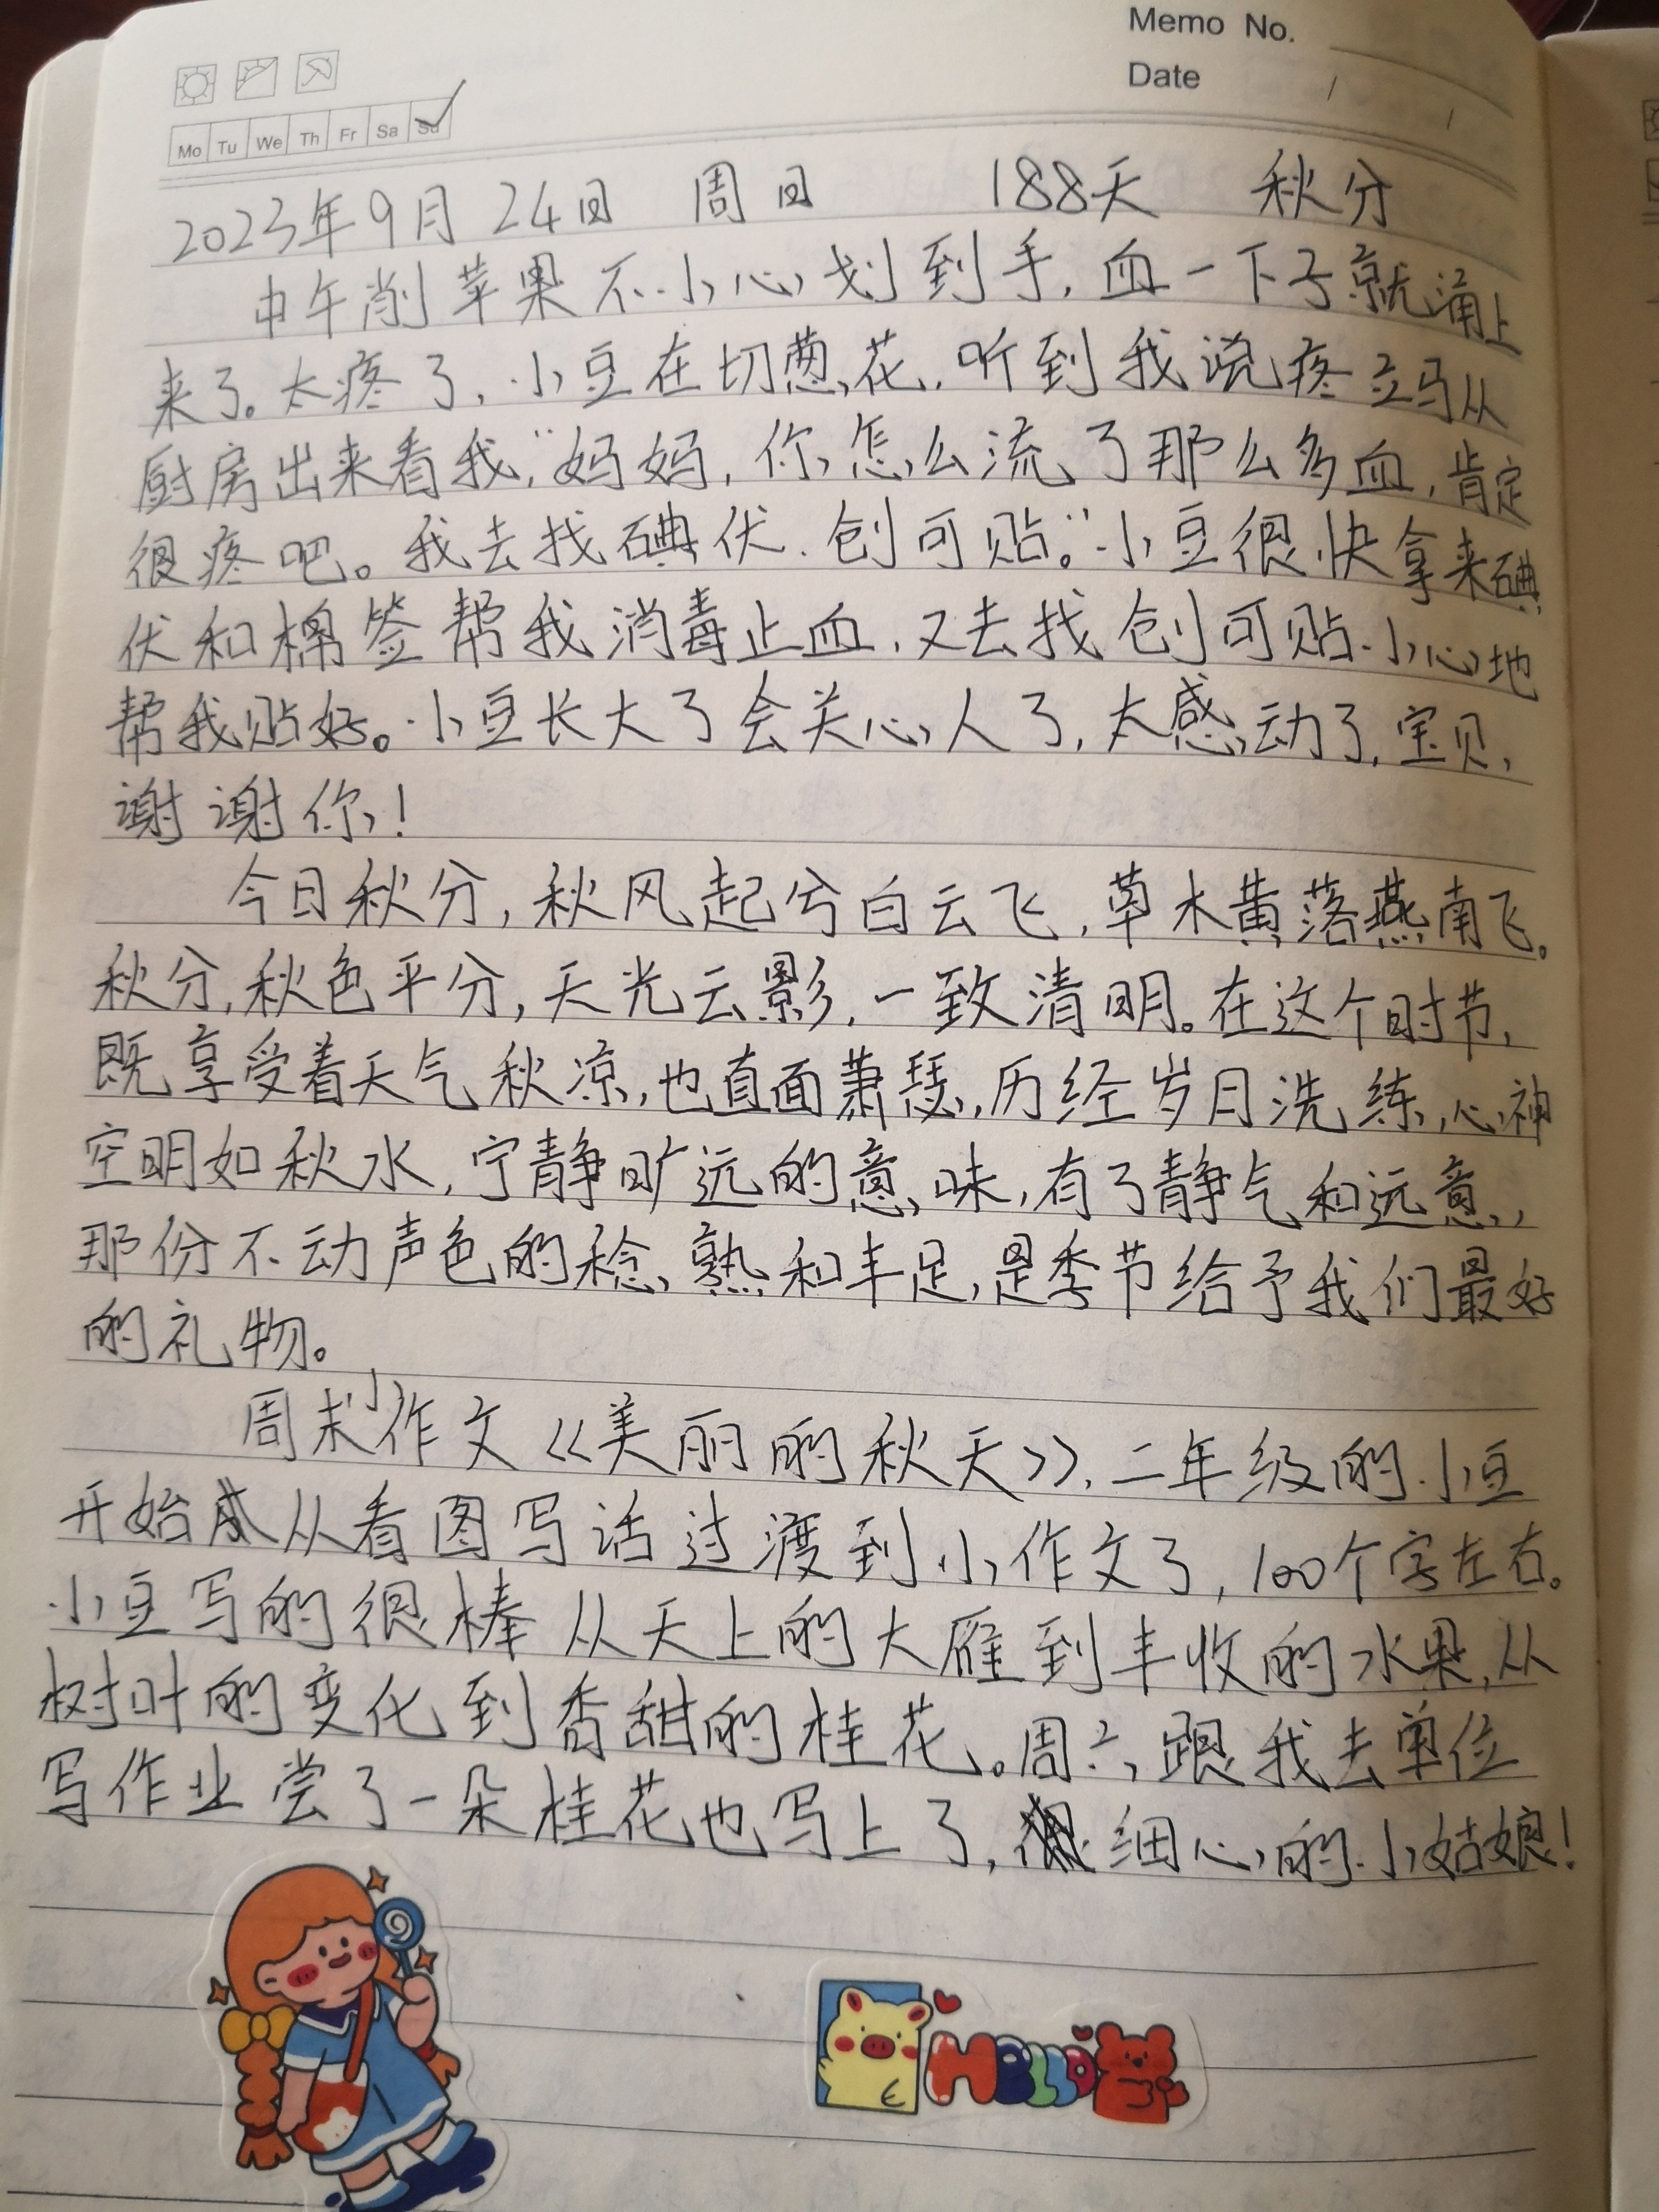 Memo No.
Date / /
Mo Tu We Th Fr Sa Su
2023年9月24日 周日 188天 秋分
中午削苹果不小心划到手,血一下子就涌上
来了。太疼了,小豆在切葱花,听到我说疼立马从
厨房出来看我,“妈妈,你怎么流了那么多血,肯定
很疼吧。我去找碘伏、创可贴。”小豆很快拿来碘
伏和棉签帮我消毒止血,又去找创可贴小心地
帮我贴好。小豆长大了会关心人了,太感动了,宝贝,
谢谢你!
今日秋分,秋风起兮白云飞,草木黄落燕南飞。
秋分,秋色平分,天光云影,一致清明。在这个时节,
既享受着天气秋凉,也直面萧瑟,历经岁月洗练,心神
空明如秋水,宁静旷远的意味,有了静气和远意,
那份不动声色的稔熟和丰足,是季节给予我们最好
的礼物。
周末小作文《美丽的秋天》,二年级的小豆
开始从看图写话过渡到小作文了,100个字左右。
小豆写的很棒 从天上的大雁到丰收的水果,从
树叶的变化到香甜的桂花。周六跟我去单位
写作业尝了一朵桂花也写上了,细心的小姑娘!
HELLO